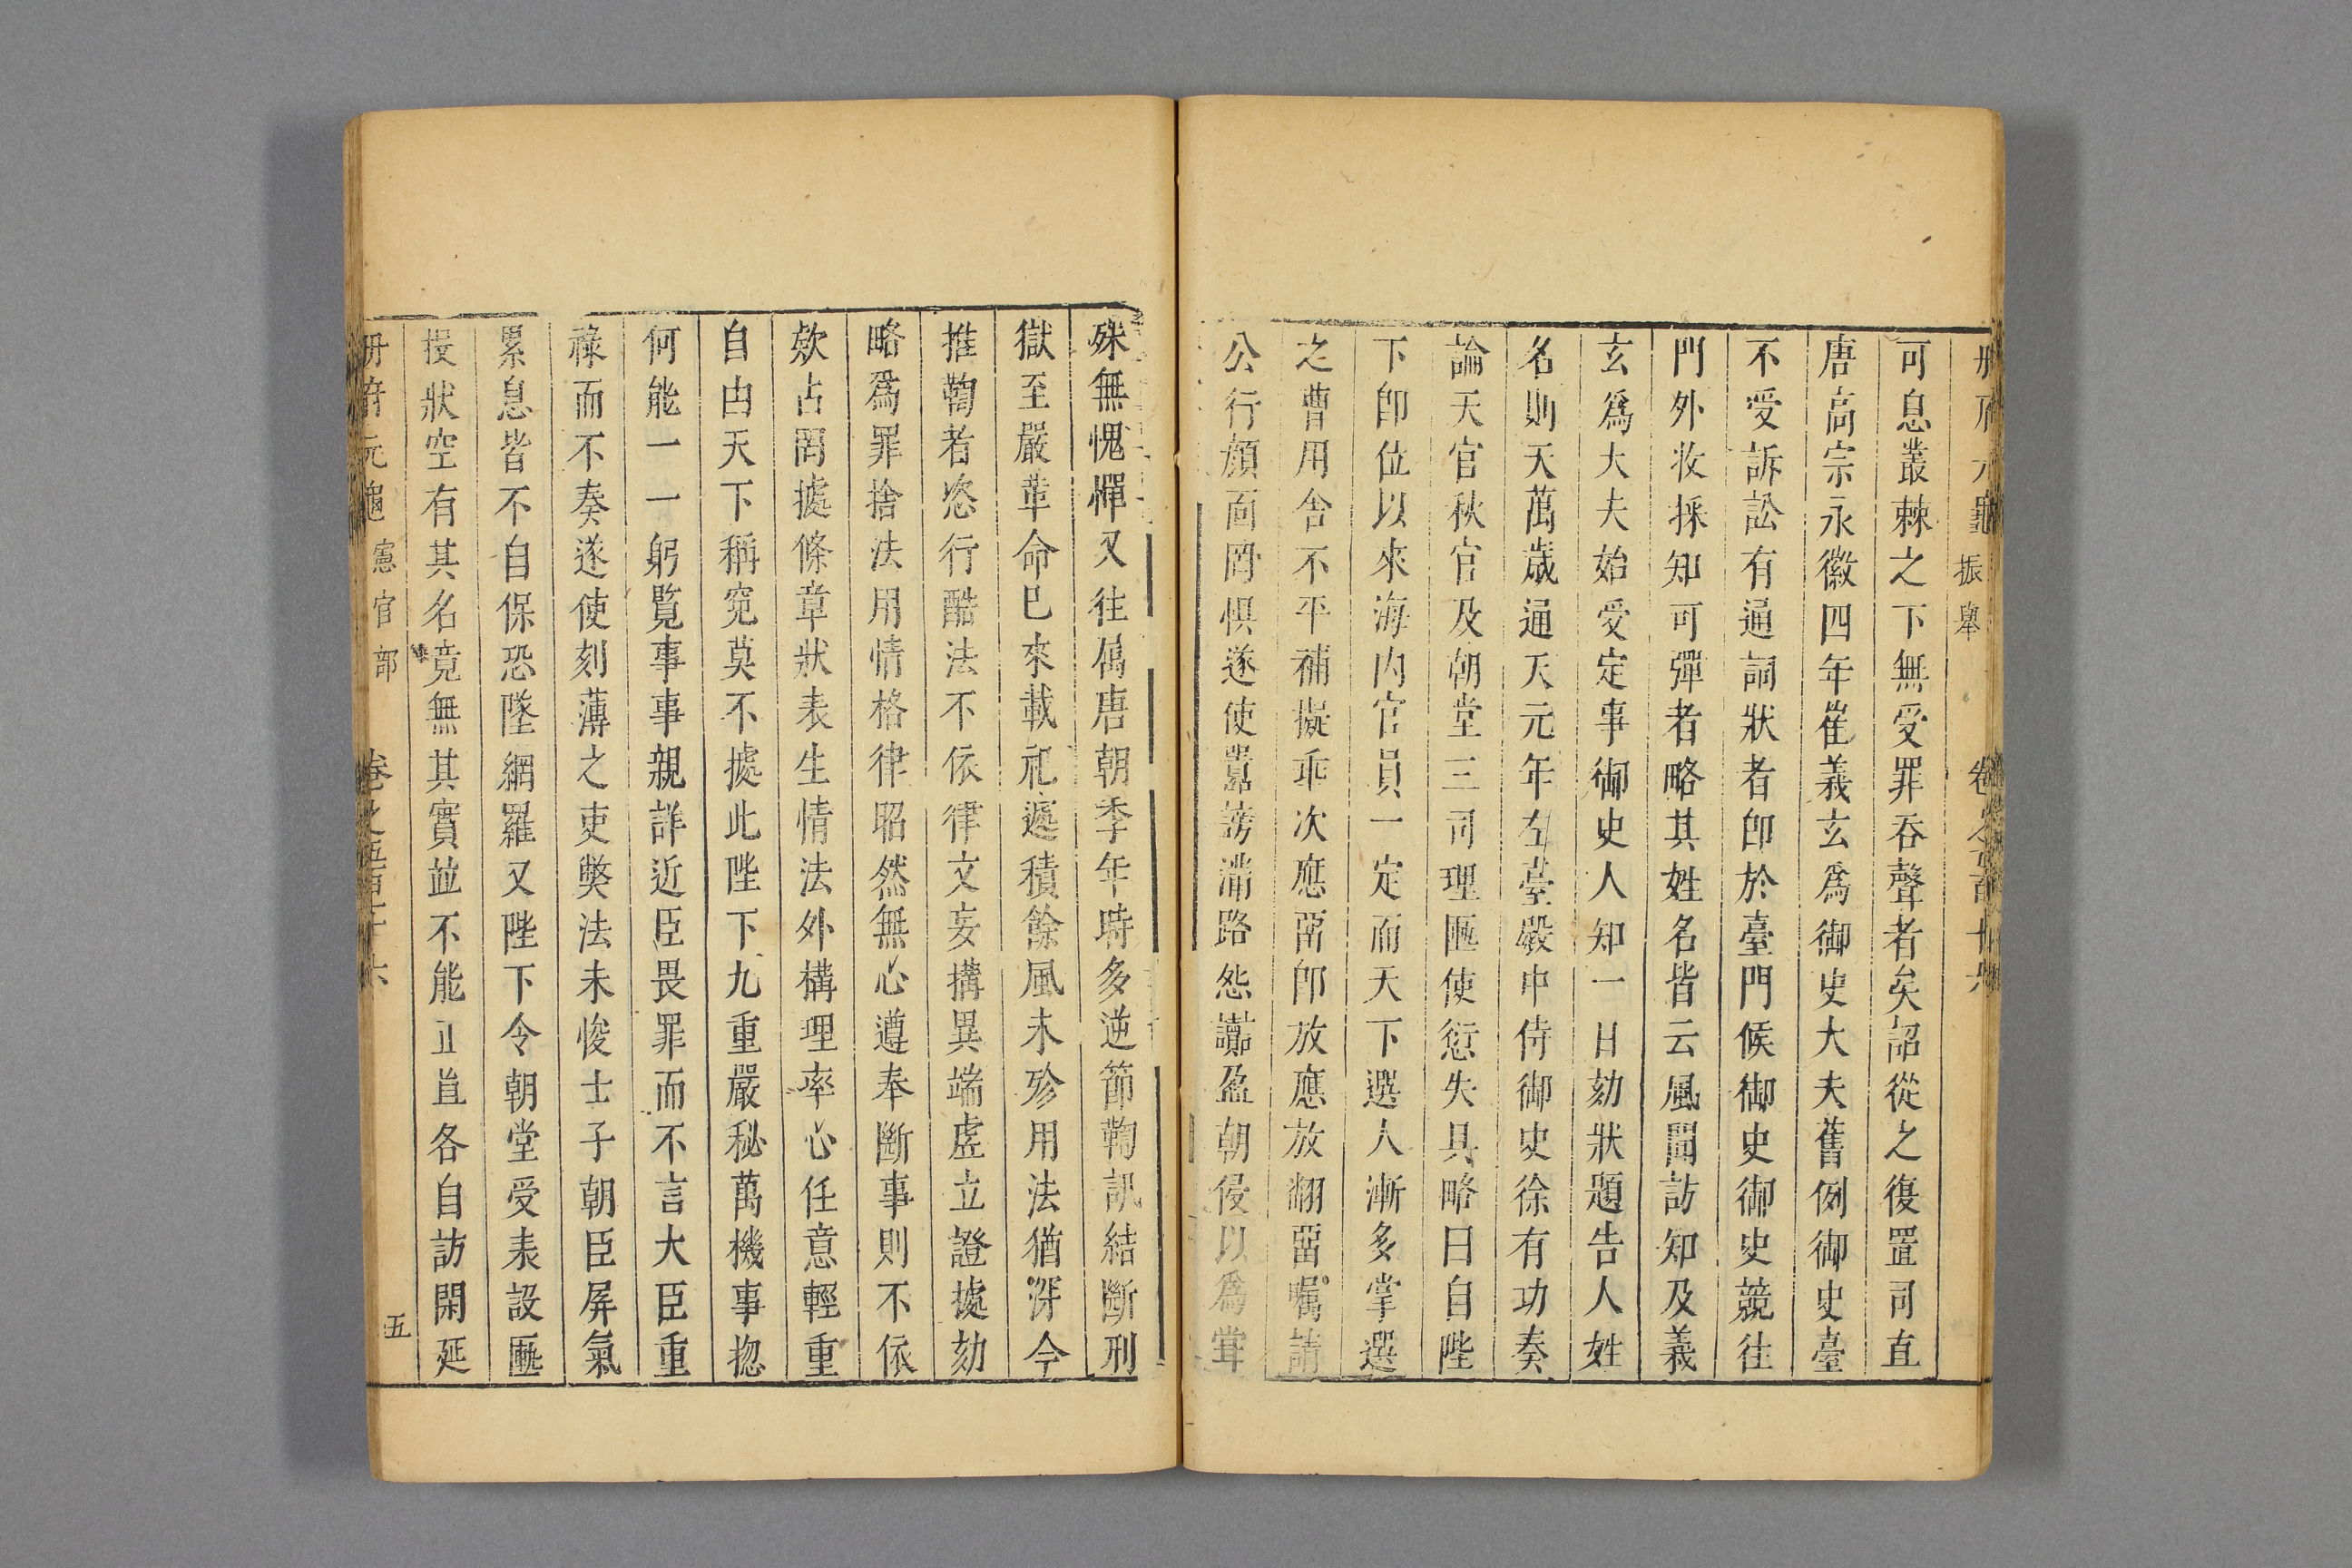 冊府元龜 振舉 卷之五百十六
可息叢棘之下無受罪吞聲者矣詔從之復置司直
唐高宗永徽四年崔義玄爲御史大夫舊例御史臺
不受訴訟有通詞狀者卽於臺門候御史御史競往
門外收採知可彈者略其姓名皆云風聞訪知及義
玄爲大夫始受定事御史人知一日劾狀題告人姓
名則天萬歲通天元年左臺殿中侍御史徐有功奏
論天官秋官及朝堂三司理匭使愆失具略曰自陛
下卽位以來海內官員一定而天下選人漸多掌選
之曹用舍不平補擬乖次應留卽放應放翻留囑請
公行顏面罔懼遂使囂謗滿路怨讟盈朝侵以爲常
殊無愧憚又往属唐朝季年時多逆節鞫訊結斷刑
獄至嚴革命已來載祀遞積餘風未殄用法猶深今
推鞫者恣行酷法不依律文妄搆異端虛立證據劾
略爲罪捨法用情格律昭然無心遵奉斷事則不依
欵占罔據條章狀表生情法外構理率心任意輕重
自由天下稱寃莫不據此陛下九重嚴秘萬機事揔
何能一一躬覧事事親詳近臣畏罪而不言大臣重
祿而不奏遂使刻薄之吏獘法未悛士子朝臣屏氣
累息皆不自保恐墜網羅又陛下令朝堂受表設匭
投狀空有其名竟無其實並不能正直各自訪閑延
冊府元龜 憲官部 卷之五百十六 五